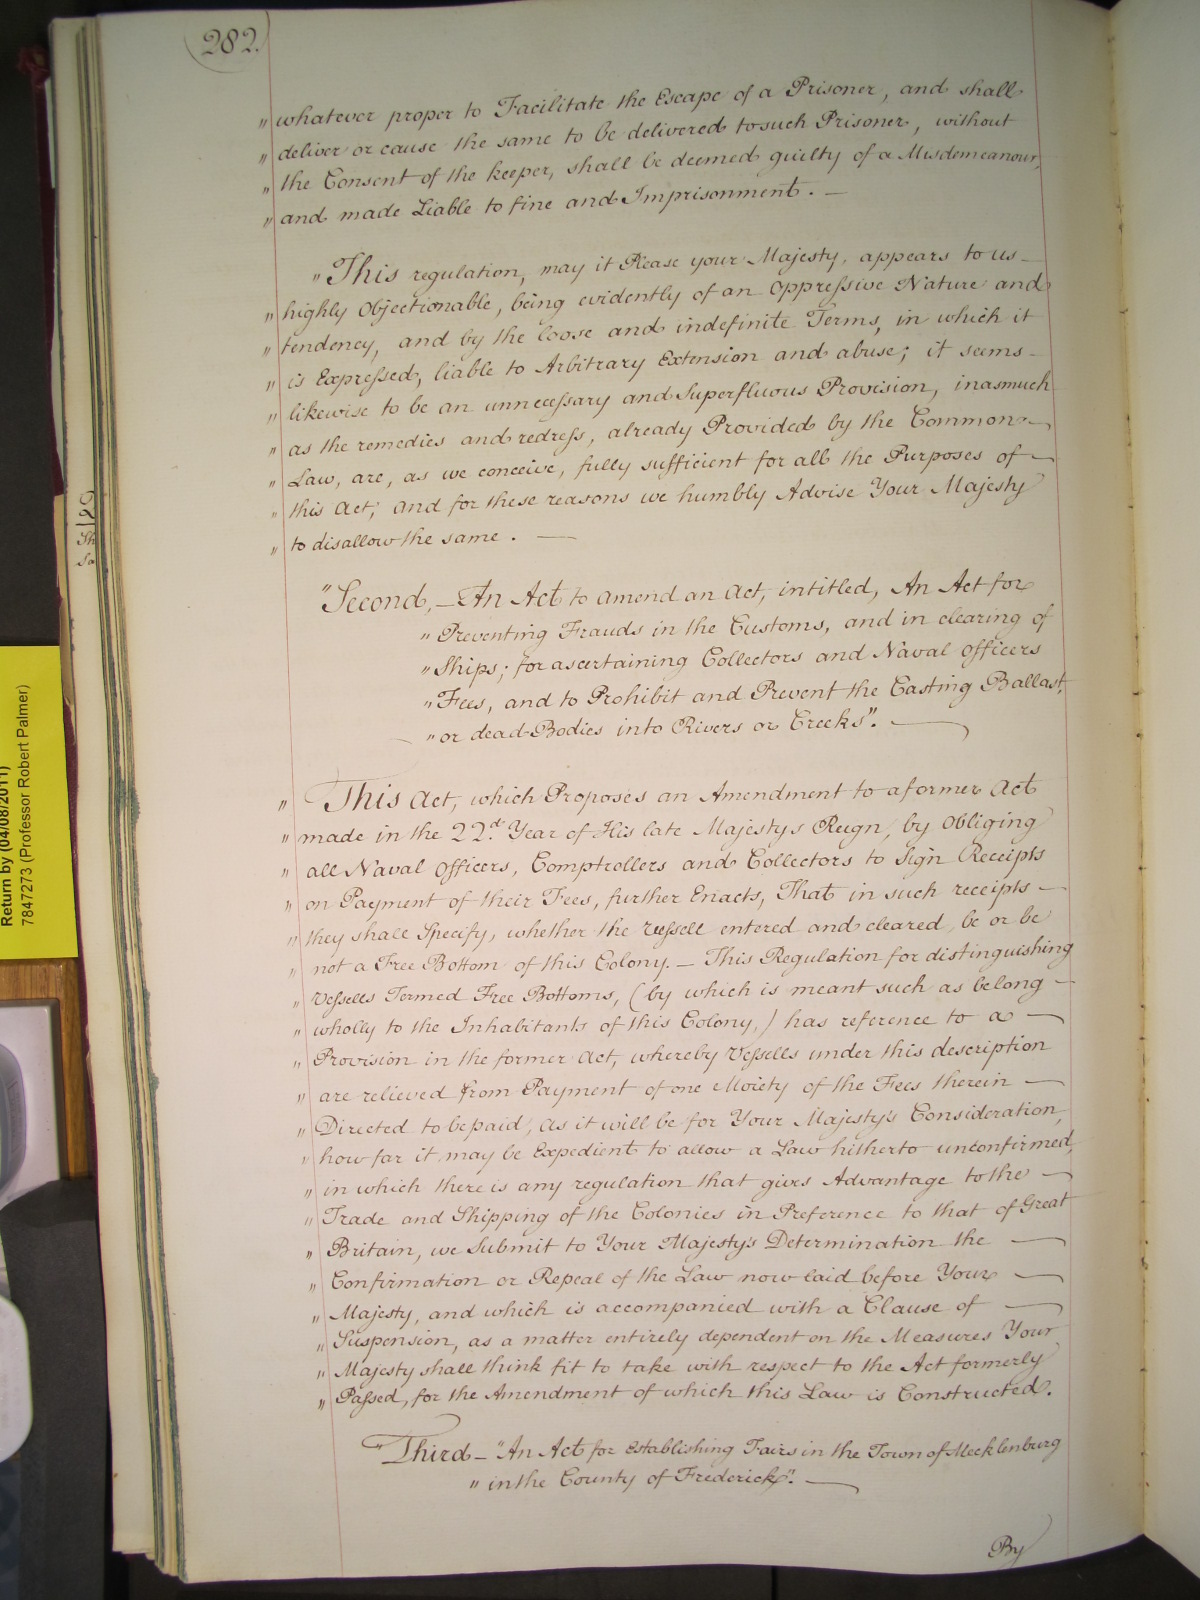 282.
" whatever proper to Facilitate the Escape of a Prisoner, and shall
" deliver or cause the same to be delivered to such Prisoner, without
" the Consent of the keeper, shall be deemed guilty of a Misdemeanour,
" and made Liable to fine and Imprisonment. —
" This regulation, may it Please your Majesty, appears to us —
" highly Objectionable, being evidently of an Oppressive Nature and
" tendency, and by the loose and indefinite Terms, in which it
" is Expressed, liable to Arbitrary Extension and abuse; it seems —
" likewise to be an unnecessary and Superfluous Provision, inasmuch
" as the remedies and redress, already Provided by the Common —
" Law, are, as we conceive, fully sufficient for all the Purposes of —
" this Act; and for these reasons we humbly Advise Your Majesty
" to disallow the same. —
" Second, — An Act to amend an Act, intitled, An Act for
" Preventing Frauds in the Customs, and in clearing of
" Ships; for ascertaining Collectors and Naval Officers
" Fees, and to Prohibit and Prevent the Casting Ballast,
" or dead Bodies into Rivers or Creeks". —
" This Act, which Proposes an Amendment to a former Act
" made in the 22d. Year of His late Majestys Reign, by Obliging
" all Naval Officers, Comptrollers and Collectors to Sign Receipts
" on Payment of their Fees, further Enacts, That in such receipts —
" they shall Specify, whether the Vessell entered and cleared, be or be
" not a Free Bottom of this Colony. — This Regulation for distinguishing
" Vessells Termed Free Bottoms, (by which is meant such as belong —
" wholly to the Inhabitants of this Colony,) has reference to a —
" Provision in the former Act, whereby Vessells under this description
" are relieved from Payment of one Moiety of the Fees therein —
" Directed to be paid, as it will be for Your Majesty's Consideration,
" how far it may be Expedient to allow a Law hitherto unconfirmed,
" in which there is any regulation that gives Advantage to the —
" Trade and Shipping of the Colonies in Preference to that of Great
" Britain, we Submit to Your Majesty's Determination the —
" Confirmation or Repeal of the Law now laid before Your —
" Majesty, and which is accompanied with a Clause of —
" Suspension, as a matter entirely dependent on the Measures Your
" Majesty shall think fit to take with respect to the Act formerly
" Passed, for the Amendment of which this Law is Constructed.
" Third — "An Act for Establishing Fairs in the Town of Mecklenburg
" in the County of Frederick". —
By
Return by (04/08/2011)
7847273 (Professor Robert Palmer)